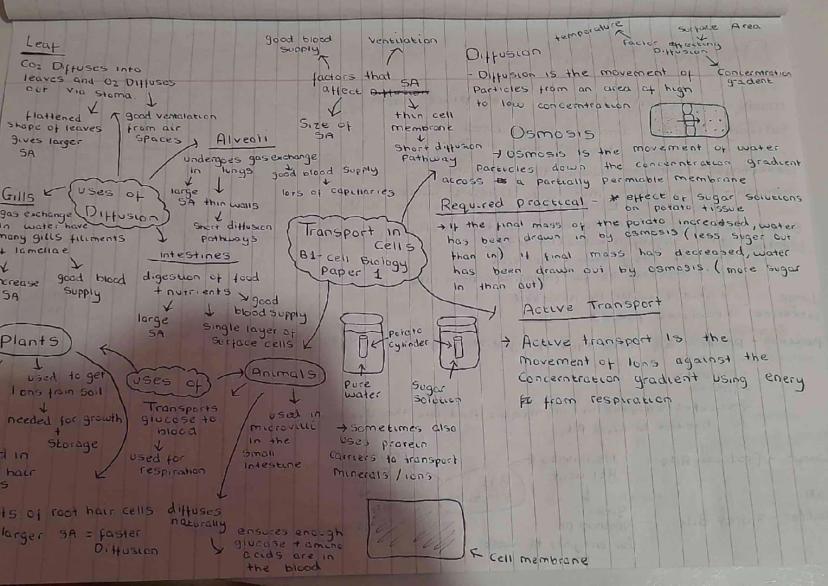 Leaf
CO2 Diffuses into
leaves and O2 Diffuses
out via stoma.
flattened
shape of leaves
gives larger
SA
good ventalation
from air
spaces
good blood
supply
ventilation
factors that
affect SA
Size of
SA
thin cell
membrane
Short diffusion
Pathway
temperature
surface Area
factor affecting
Diffusion
Concentration
gradent
Diffusion
- Diffusion is the movement of
Particles from an area of high
to low concentration
Osmosis
→ Osmosis is the movement of water
Particles down the concentration gradient
across a partially permiable membrane
Required practical - * effect of sugar solutions
on potato tissue
→ if the final mass of the potato increased, water
has been drawn in by osmosis (less suger out
than in) if final mass has decreased, water
has been drawn out by osmosis. (more sugar
in than out)
Alveoli
undergoes gas exchange
in lungs
large
SA
thin walls
Short diffusion
pathways
good blood supply
lots of capillaries
uses of
Diffusion
Gills
gas exchange
in water have
many gills filiments
+ lamellae
crease
SA
good blood
supply
Intestines
digestion of food
+ nutrients
large
SA
Single layer of
surface cells
good
blood supply
Transport in
Cells
B1- Cell Biology
Paper 1
Potato
cylinder
Pure
water
Sugar
solution
Active Transport
→ Active transport is the
movement of ions against the
Concentration gradient using enery
from respiration
→ Sometimes also
uses protein
carriers to transport
minerals / ions
← Cell membrane
Plants
used to get
ions from soil
needed for growth
+
storage
d in
hair
s
ts of root hair cells
larger SA = faster
Diffusion
uses of
Animals
Transports
glucose to
blood
used for
respiration
used in
microvilli
in the
small
intestine
diffuses
naturally
ensures enough
glucose + amino
acids are in
the blood